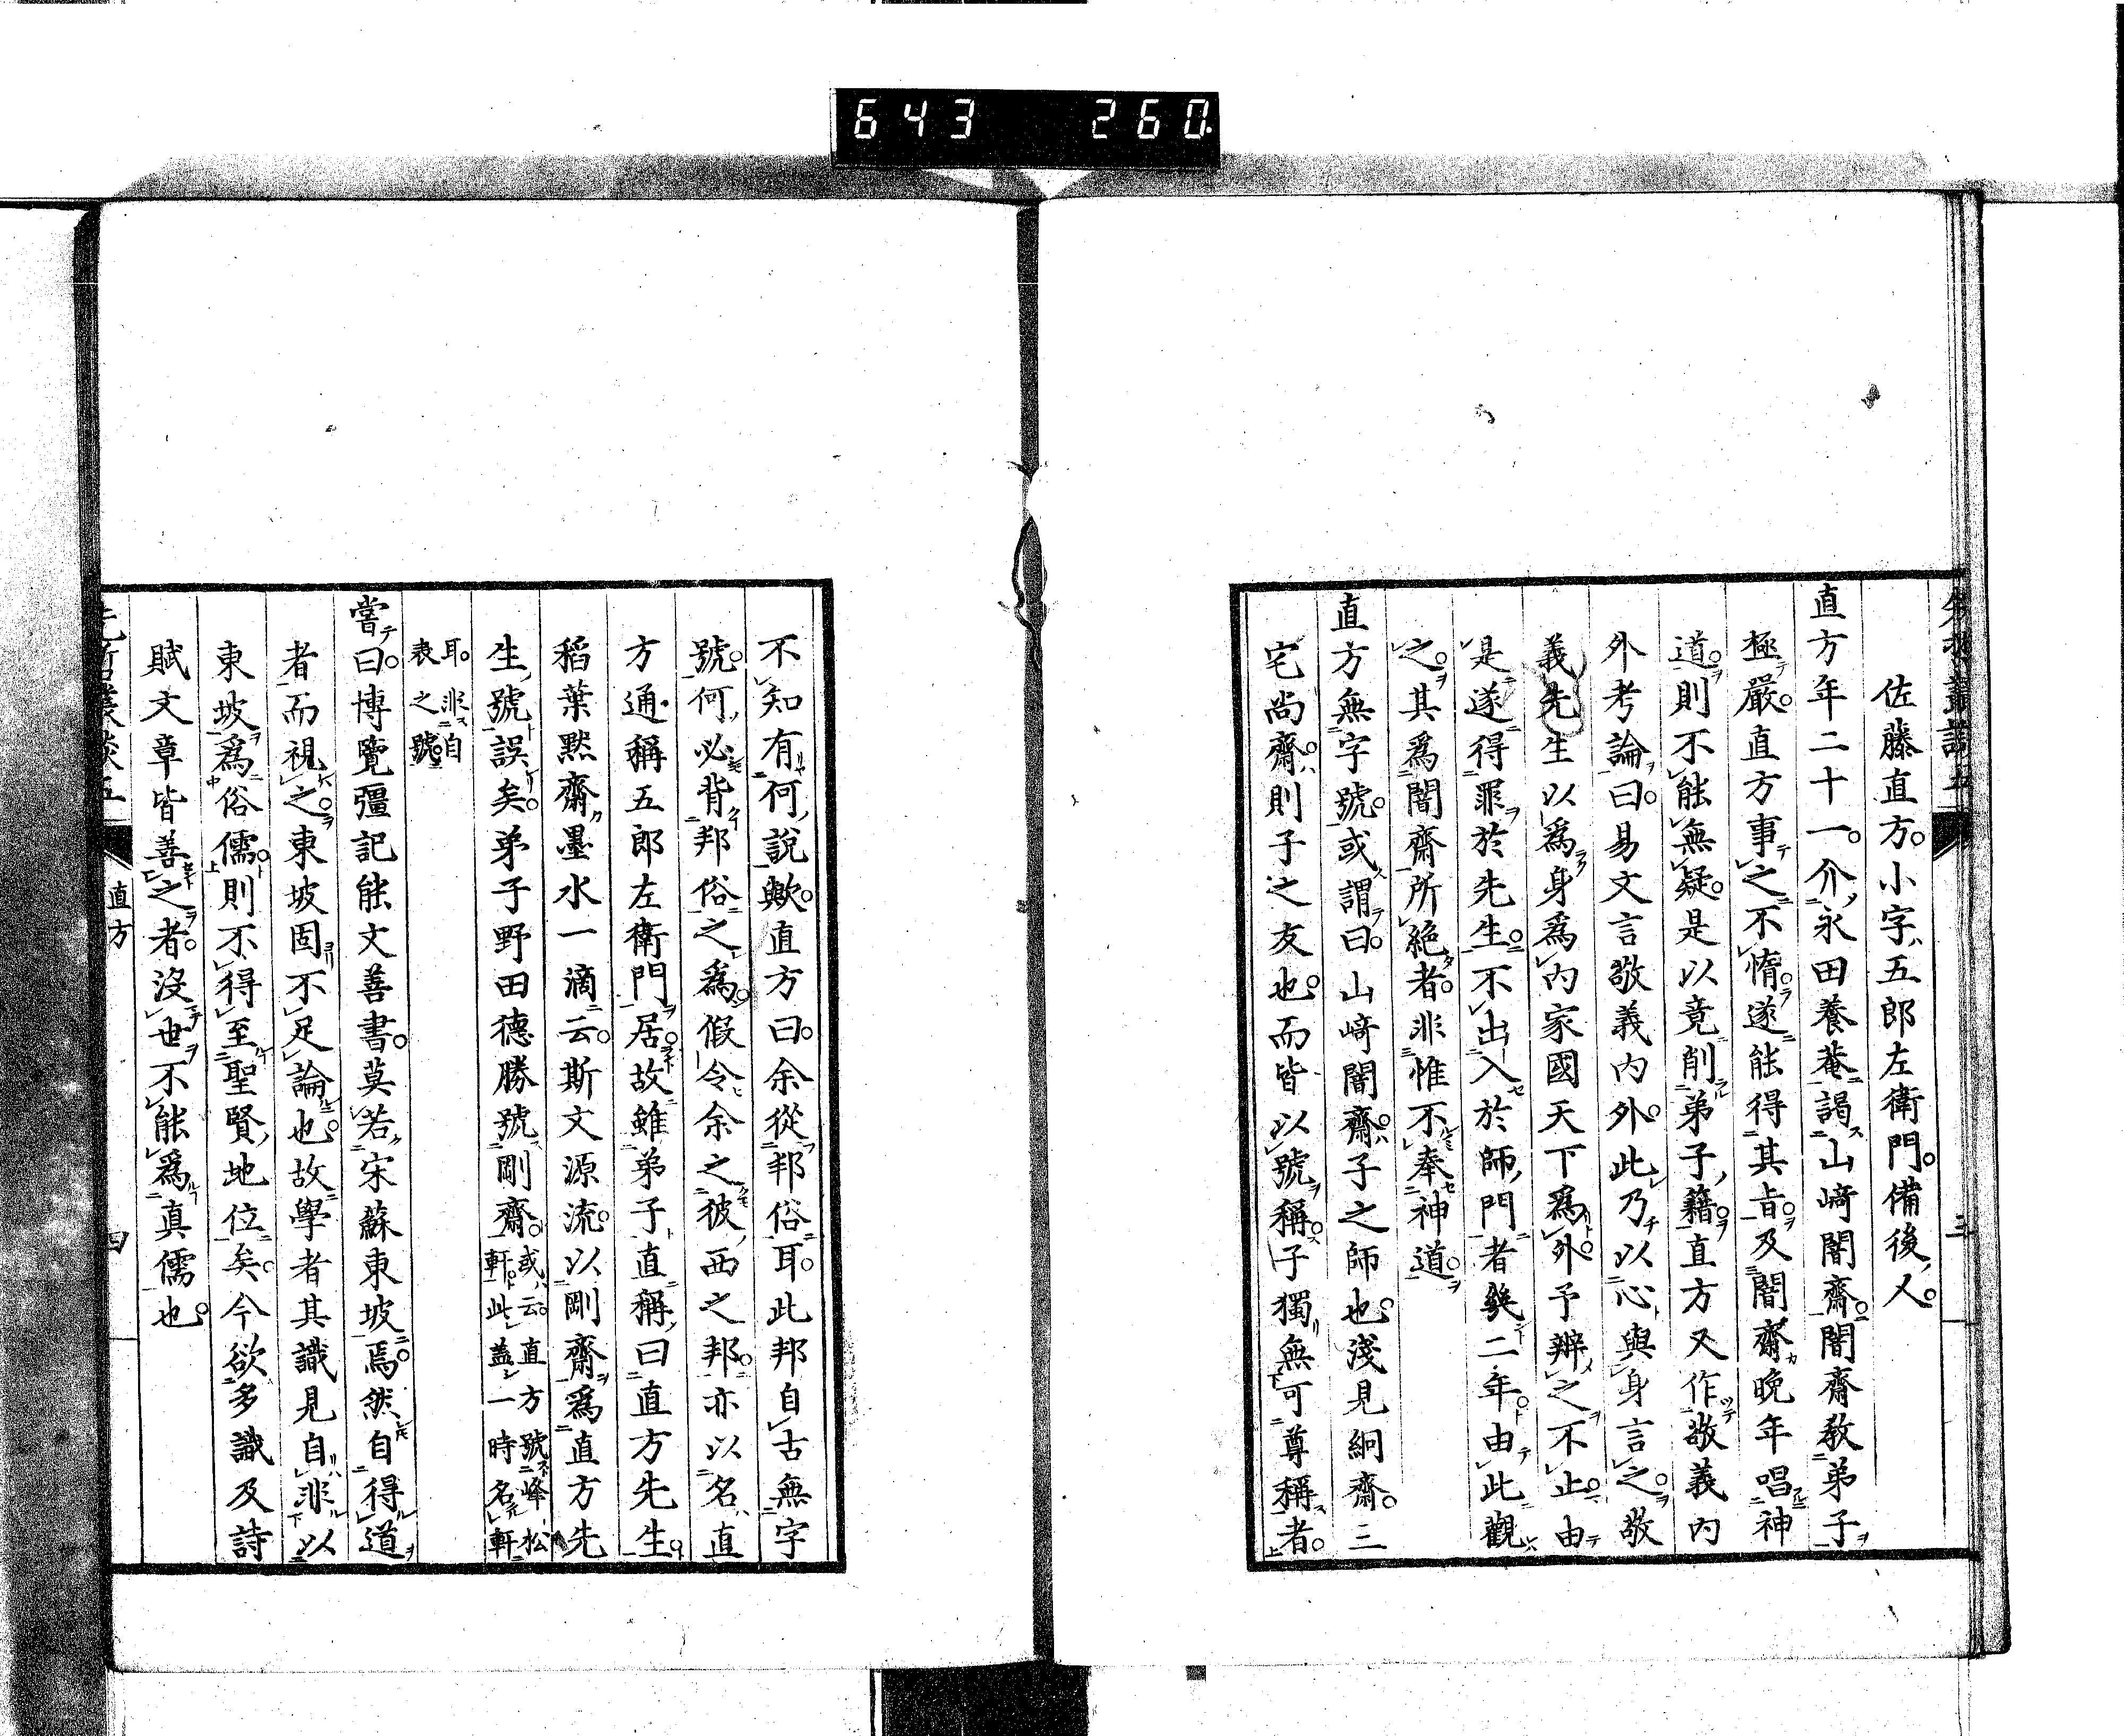 643 260
先哲叢談五
三
佐藤直方。小字五郎左衛門。備後人。
直方年二十一。介永田養菴謁山﨑闇齋。闇齋教弟子
極嚴。直方事之不惰。遂能得其旨。及闇齋晚年唱神
道。則不能無疑。是以竟削弟子籍。直方又作敬義内
外考論。曰。易文言敬義内外。此乃以心與身言之。敬
義先生以爲身爲内家國天下爲外。予辨之不止。由
是遂得罪於先生。不出入於師門者幾二年。由此觀
之。其爲闇齋所絶者。非惟不奉神道。
直方無字號。或謂曰。山﨑闇齋。子之師也。淺見絅齋。三
宅尚齋。則子之友也。而皆以號稱。子獨無可尊稱者。
不知有何說歟。直方曰。余從邦俗耳。此邦自古無字
號。何必背邦俗之爲。假令余之彼西之邦。亦以名直
方通稱五郎左衛門居。故雖弟子直稱曰直方先生。
稻葉默齋墨水一滴云。斯文源流。以剛齋爲直方先
生號誤矣。弟子野田德勝號剛齋。或云。直方號峰松
軒。此蓋一時名軒
耳。非自
表之號
嘗曰。博覽彊記能文善書。莫若宋蘇東坡焉。然自得道
者而視之。東坡固不足論也。故學者其識見自非以
東坡爲俗儒。則不得至聖賢地位矣。今欲多識及詩
賦文章皆善之者。沒世不能爲真儒也。
先哲叢談五
直方
四